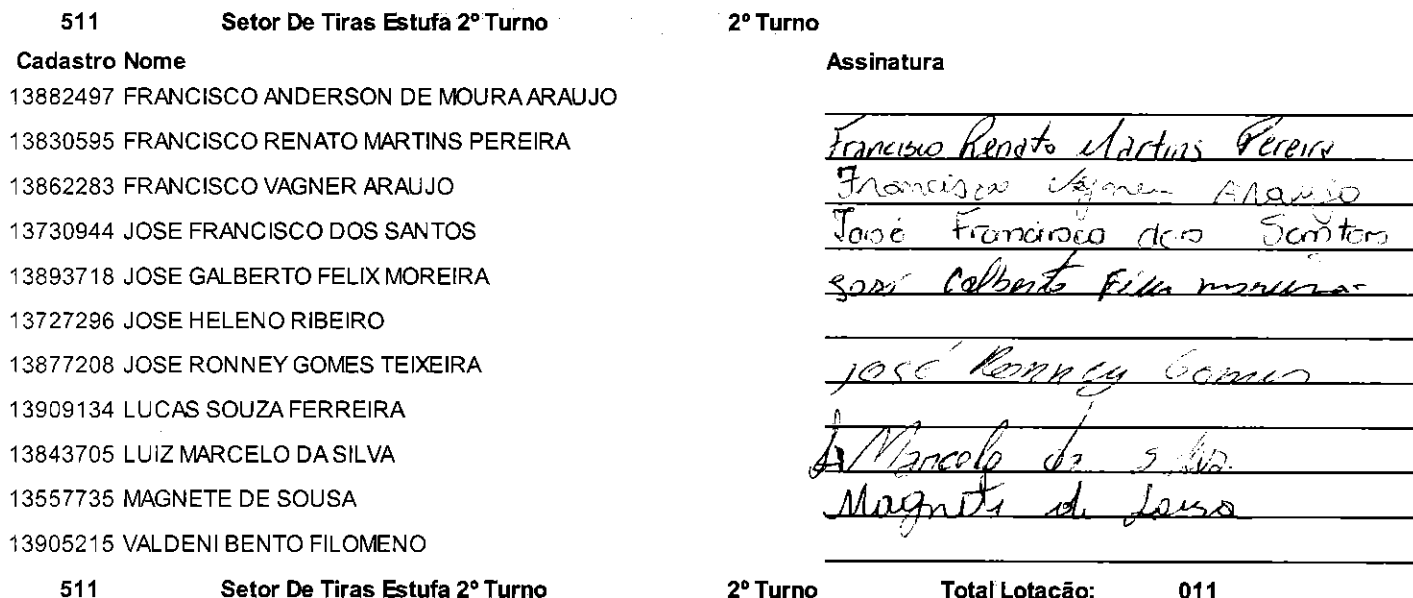 511 Setor De Tiras Estufa 2º Turno 2º Turno
Cadastro Nome Assinatura
13882497 FRANCISCO ANDERSON DE MOURA ARAUJO
13830595 FRANCISCO RENATO MARTINS PEREIRA Francisco Renato Martins Pereira
13862283 FRANCISCO VAGNER ARAUJO Francisco Vagner Araujo
13730944 JOSE FRANCISCO DOS SANTOS José Francisco dos Santos
13893718 JOSE GALBERTO FELIX MOREIRA José Calberto Moreira
13727296 JOSE HELENO RIBEIRO
13877208 JOSE RONNEY GOMES TEIXEIRA José Ronney Gomes
13909134 LUCAS SOUZA FERREIRA
13843705 LUIZ MARCELO DA SILVA Marcelo da Silva
13557735 MAGNETE DE SOUSA Magnete de Sousa
13905215 VALDENI BENTO FILOMENO
511 Setor De Tiras Estufa 2º Turno 2º Turno Total Lotação: 011